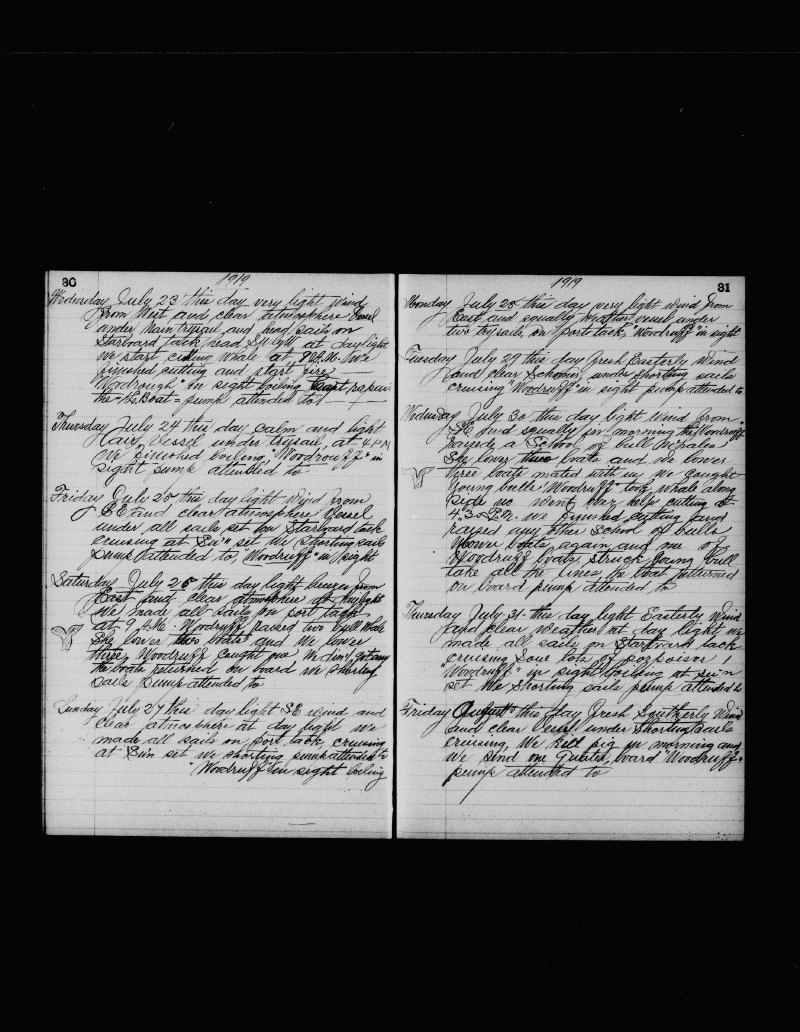 80
1919
Wednesday July 23 this day very light Wind
from West and clear atmosphere Vessel
under Main trysail and head sails on
Starboard tack head SW by W at day light
we start cutting whale at 8 A.M. We
finished cutting and start fire
Woodrough" in sight boiling Capt repair
the Boat = pump attended to
Thursday July 24 this day calm and light
Airs, Vessel under trysail, at 4 PM
We finished boiling, "Woodrouff" in
sight pump attended to
Friday July 25 this day light wind from
SE and clear atmosphere Vessel
under all sails set on Starboard tack
cruising at Sun set We shorting sails
pump attended to, "Woodruff" in sight
Saturday July 26 this day light breezes from
East and clear atmosphere at day light
We made all sails on port tack
at 9 A.M. Woodruff raised two bull whale
She lower two boats and We lower
three, Woodruff Caught one, We din't get any
the boats returned on board we shorting
sails pump attended to
Sunday July 27 this day light SE wind and
clear atmosphere at day light we
made all sails on port tack, cruising
at Sun set we shorting pump attended to
"Woodruff" in sight boiling
1919
81
Monday July 28 this day very light wind from
East and squally weather vessel under
two try sails, on port tack, "Woodruff" in sight
Tuesday July 29 this day fresh Easterly Wind
and clear Schooner under shorting sails
cruising "Woodruff" in sight pump attended to
Wednesday July 30 this day light Wind from
SE and squally in morning the "Woodruff"
raised a School of bull Whales
She lower three boats and we lower
three boats mated with us we caught
young bulls "Woodruff" took whale along
side we went help cutting at
4.30 P.M. we finished cutting and
raised any other School of bulls
lower boats again and one of
Woodruff boats struck young bull
take all the lines the boat returned
on board pump attended to
Thursday July 31 this day light Easterly Wind
and clear Weather at day light we
made all sails on Starboard tack
cruising
"Woodruff" in sight boiling at sun
set We shorting sails pump attended to
Friday August 1 this day fresh Southerly Wind
and clear Vessel under shorting sails
cruising, We kill pig in morning and
we send one board "Woodruff"
pump attended to